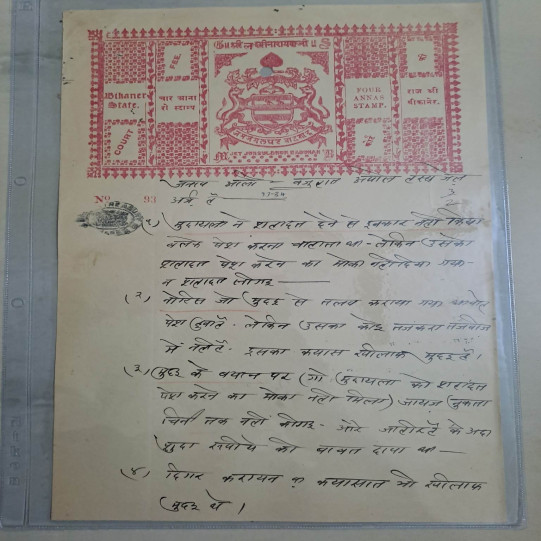 ॥ श्री लक्ष्मीनारायणजी ॥
Bikaner State.
COURT FEE.
चार आना रो स्टाम्प
FOUR ANNAS STAMP.
राज श्री बीकानेर.
No 93
अर्ज है
(१) मुद्दायला ने शहादत देने से इनकार नहीं किया
बल्के पेश करना चाहाता था - लेकिन उसको
शहादत पेश करने का मौका नहीं दिया गया
न शहादत लीगई
(२) नोटिस जो मुद्दई से तलब कराया गया
पेश हुवा है - लेकिन उसका कोई तजकरा तजवीज
में नहीं है - इसका कयास खीलाफ मुद्दई है ।
(३) मुद्दई के बयान पर (गो मुद्दायला को शहादत
पेश करने का मौका नहीं मिला) जायज नुकता
चिनी तक नहीं कीगई - और जाहीर है के अदा
शुदा रुपीये की बाबत दावा था —
(४) दिगर करायन व कयासात भी खीलाफ
मुद्दई थे ।